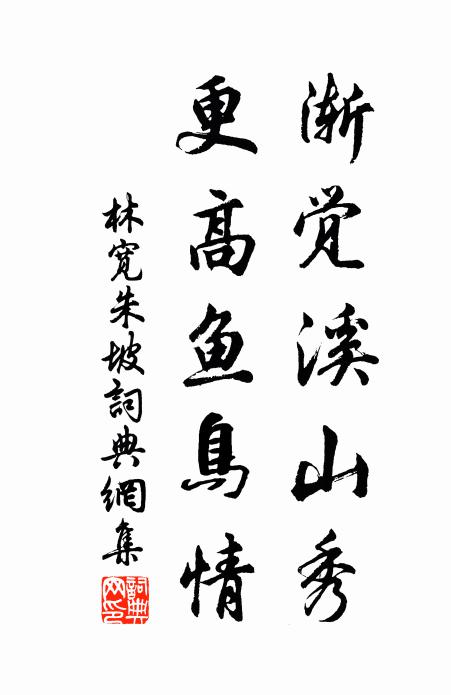 渐觉溪山秀
更高鱼鸟情
林宽朱坡詞典網集
詞典网印